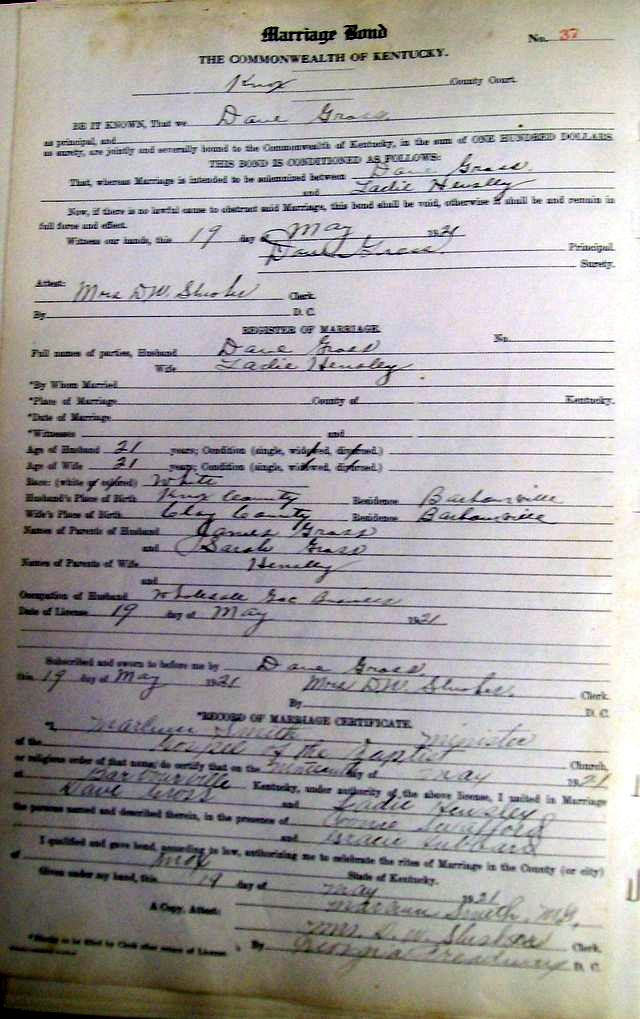 Marriage Bond
No. 37
THE COMMONWEALTH OF KENTUCKY.
Knox County Court.
BE IT KNOWN, That we Dave Gross
as principal, and
as surety, are jointly and severally bound to the Commonwealth of Kentucky, in the sum of ONE HUNDRED DOLLARS.
THIS BOND IS CONDITIONED AS FOLLOWS:
That, whereas Marriage is intended to be solemnized between Dave Gross
and Ladie Hensley
Now, if there is no lawful cause to obstruct said Marriage, this bond shall be void, otherwise it shall be and remain in
full force and effect.
Witness our hands, this 19 day of May 1921
Dave Gross Principal.
Surety.
Attest:
Mrs D.W. Clerk.
By D. C.
REGISTER OF MARRIAGE.
No.
Full names of parties, Husband Dave Gross
Wife Ladie Hensley
*By Whom Married
*Place of Marriage County of Kentucky.
*Date of Marriage
*Witnesses and
Age of Husband 21 years; Condition (single, widowed, divorced.)
Age of Wife 21 years; Condition (single, widowed, divorced.)
Race: (white or colored) White
Husband's Place of Birth Knox County Residence Barbourville
Wife's Place of Birth Clay County Residence Barbourville
Names of Parents of Husband James Gross
and Sarah Gross
Names of Parents of Wife Hensley
and
Occupation of Husband Wholesale
Date of License 19 day of May 1921
Subscribed and sworn to before me by Dave Gross
this 19 day of May 1921 Mrs D.W. Clerk.
By D. C.
*RECORD OF MARRIAGE CERTIFICATE.
I, Smith Minister
of the Gospel of the Baptist Church,
or religious order of that name, do certify that on the day of May 1921
at Barbourville Kentucky, under authority of the above license, I united in Marriage
Dave Gross and Ladie Hensley
the persons named and described therein, in the presence of
and
I qualified and gave bond, according to law, authorizing me to celebrate the rites of Marriage in the County (or city)
of Knox State of Kentucky.
Given under my hand, this 19 day of May 1921
Smith, M.G.
A Copy, Attest: Mrs. D. W. Clerk.
*Blanks to be filled by Clerk after return of License By Georgia D. C.